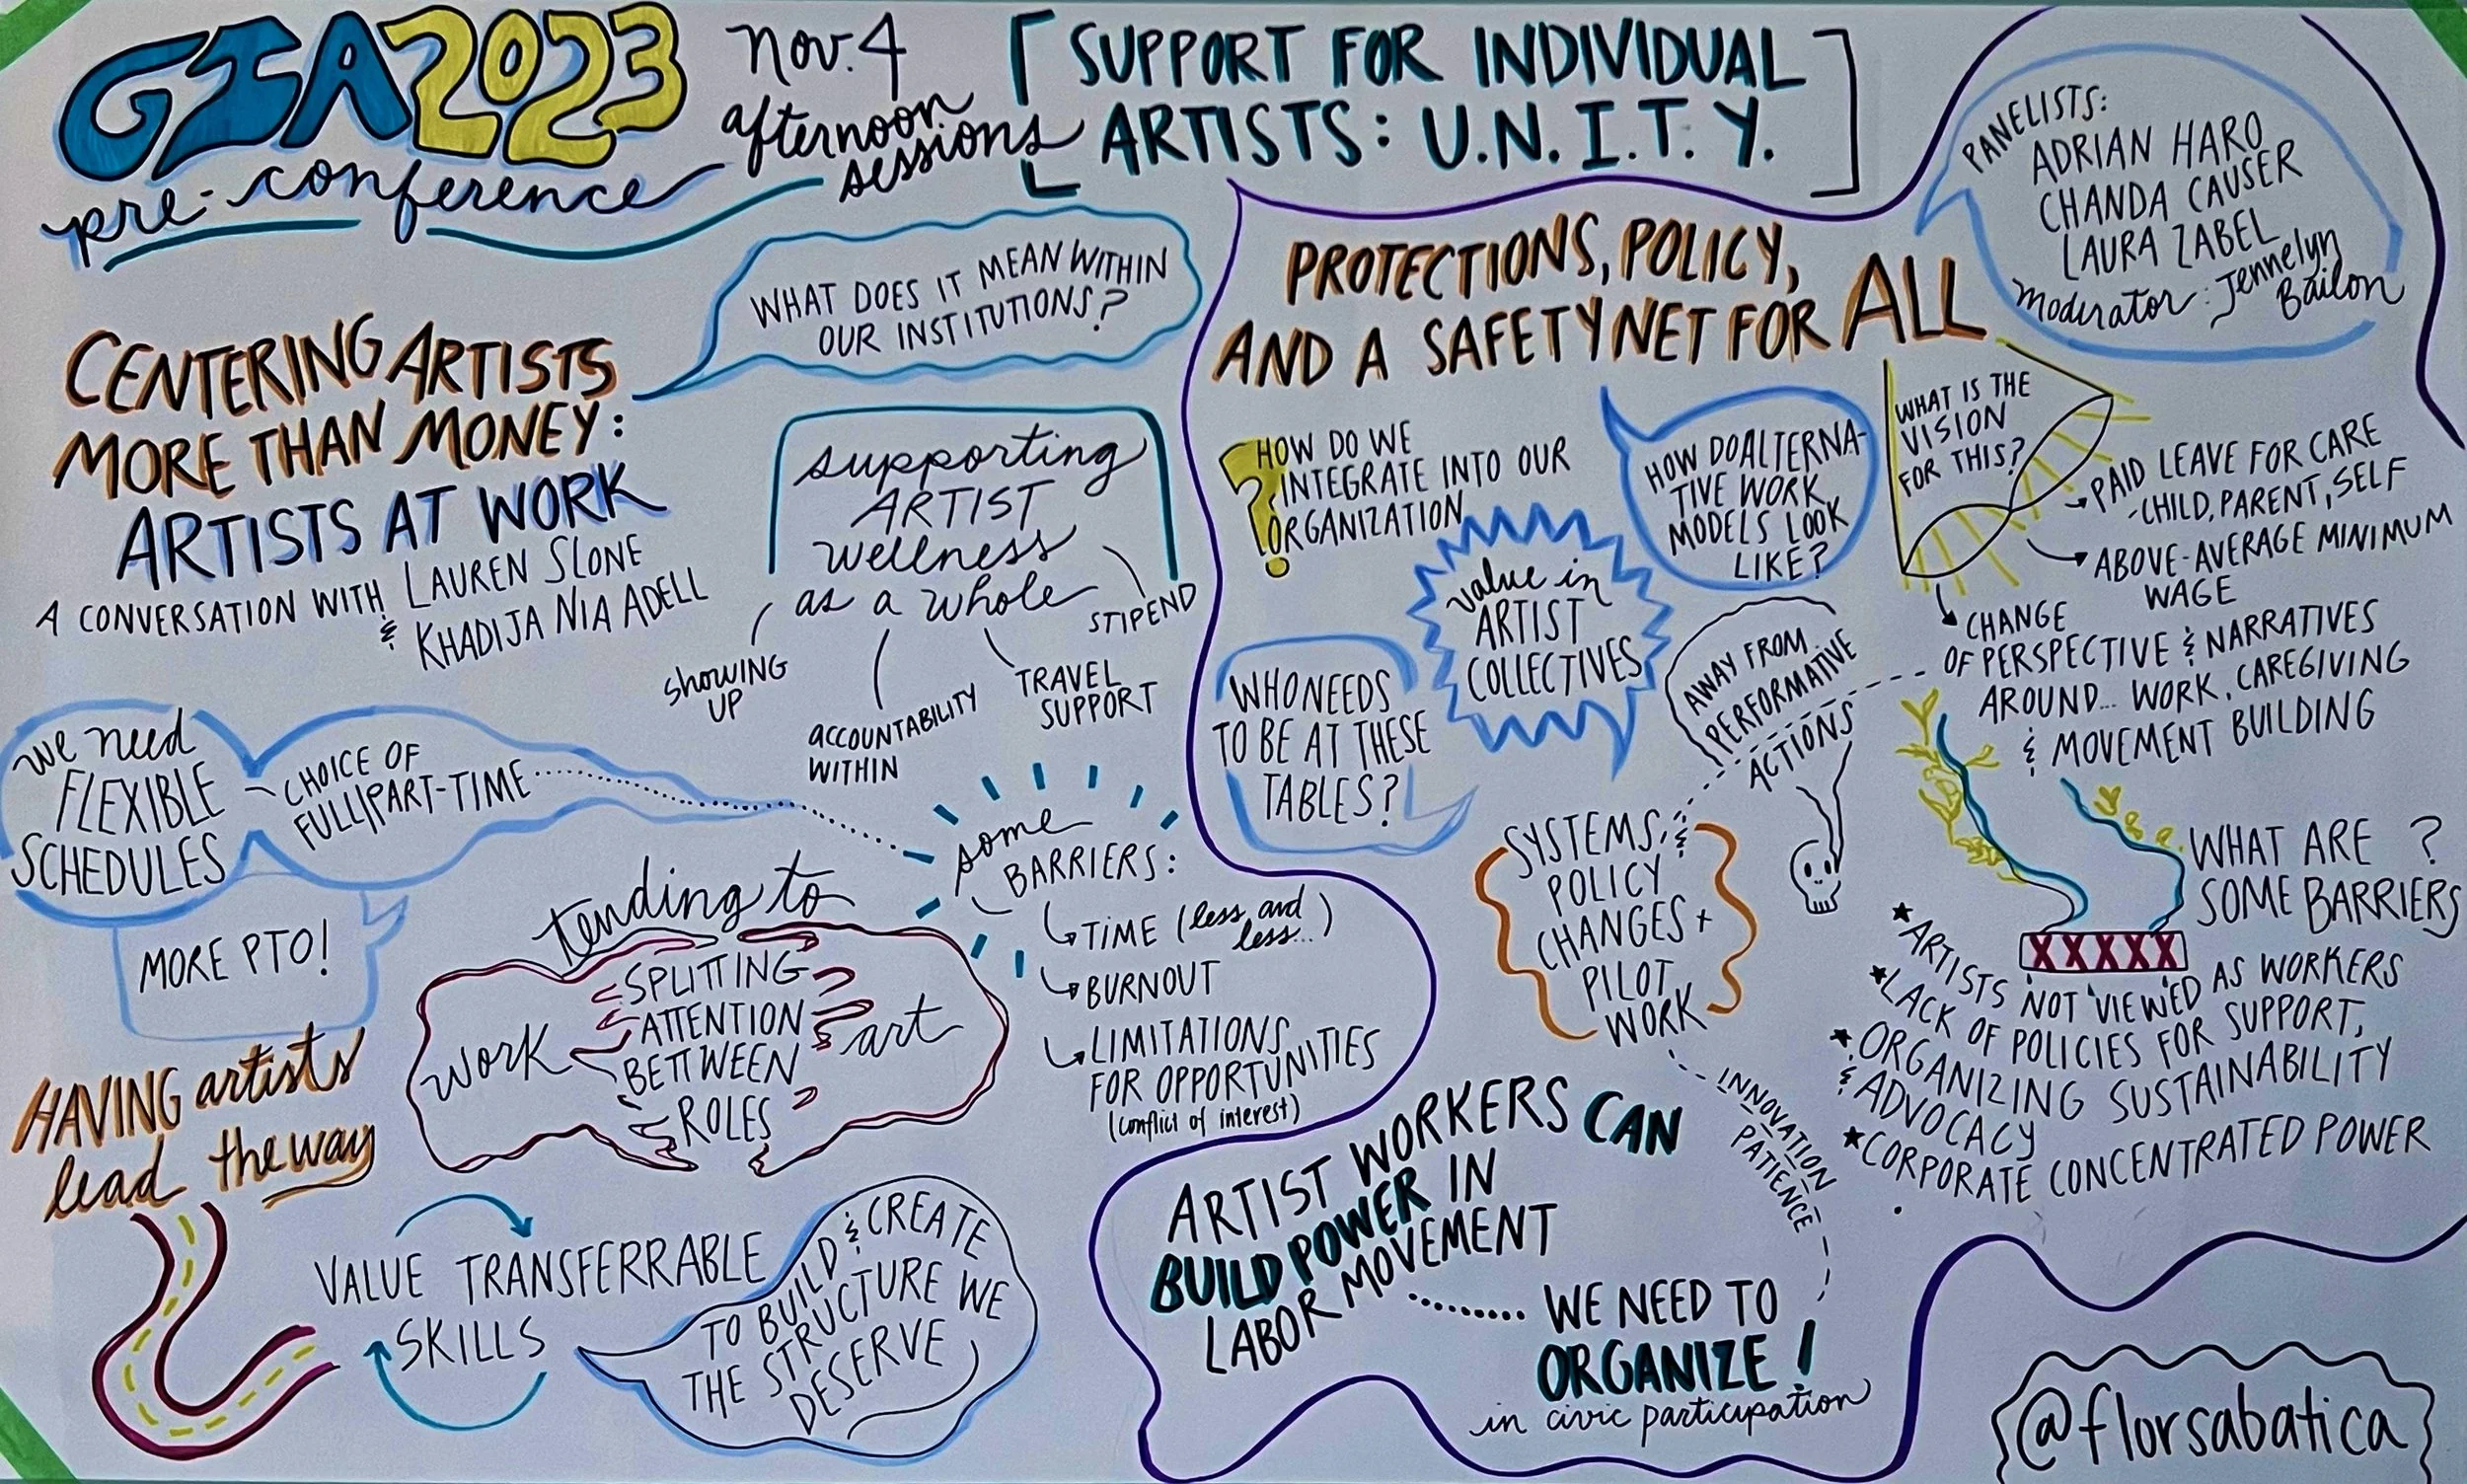 GIA2023
pre-conference
Nov. 4
afternoon
sessions
[SUPPORT FOR INDIVIDUAL
ARTISTS: U.N.I.T.Y.]
CENTERING ARTISTS
MORE THAN MONEY:
ARTISTS AT WORK
A CONVERSATION WITH LAUREN SLONE
& KHADIJA NIA ADELL
WHAT DOES IT MEAN WITHIN
OUR INSTITUTIONS?
supporting
ARTIST
wellness
as a whole
SHOWING
UP
ACCOUNTABILITY
WITHIN
TRAVEL
SUPPORT
STIPEND
We need
FLEXIBLE
SCHEDULES
CHOICE OF
FULL|PART-TIME
MORE PTO!
some
BARRIERS:
TIME (less and
less...)
BURNOUT
LIMITATIONS
FOR OPPORTUNITIES
(conflict of interest)
tending to
work
SPLITTING
ATTENTION
BETTWEEN
ROLES
art
HAVING artists
lead the way
VALUE TRANSFERRABLE
SKILLS
TO BUILD & CREATE
THE STRUCTURE WE
DESERVE
PROTECTIONS, POLICY,
AND A SAFETYNET FOR ALL
PANELISTS:
ADRIAN HARO
CHANDA CAUSER
LAURA ZABEL
moderator: Jennelyn
Bailon
? HOW DO WE
INTEGRATE INTO OUR
ORGANIZATION
HOW DO ALTERNA-
TIVE WORK
MODELS LOOK
LIKE?
WHAT IS THE
VISION
FOR THIS?
PAID LEAVE FOR CARE
-CHILD, PARENT, SELF
ABOVE-AVERAGE MINIMUM
WAGE
CHANGE
OF PERSPECTIVE & NARRATIVES
AROUND... WORK, CAREGIVING
& MOVEMENT BUILDING
value in
ARTIST
COLLECTIVES
WHO NEEDS
TO BE AT THESE
TABLES?
AWAY FROM
PERFORMATIVE
ACTIONS
SYSTEMS &
POLICY
CHANGES +
PILOT
WORK
INNOVATION
PATIENCE
WHAT ARE ?
SOME BARRIERS
XXXXX
★ARTISTS NOT VIEWED AS WORKERS
★LACK OF POLICIES FOR SUPPORT,
★ORGANIZING SUSTAINABILITY
& ADVOCACY
★CORPORATE CONCENTRATED POWER
ARTIST WORKERS CAN
BUILD POWER IN
LABOR MOVEMENT
WE NEED TO
ORGANIZE!
in civic participation
@florsabatica